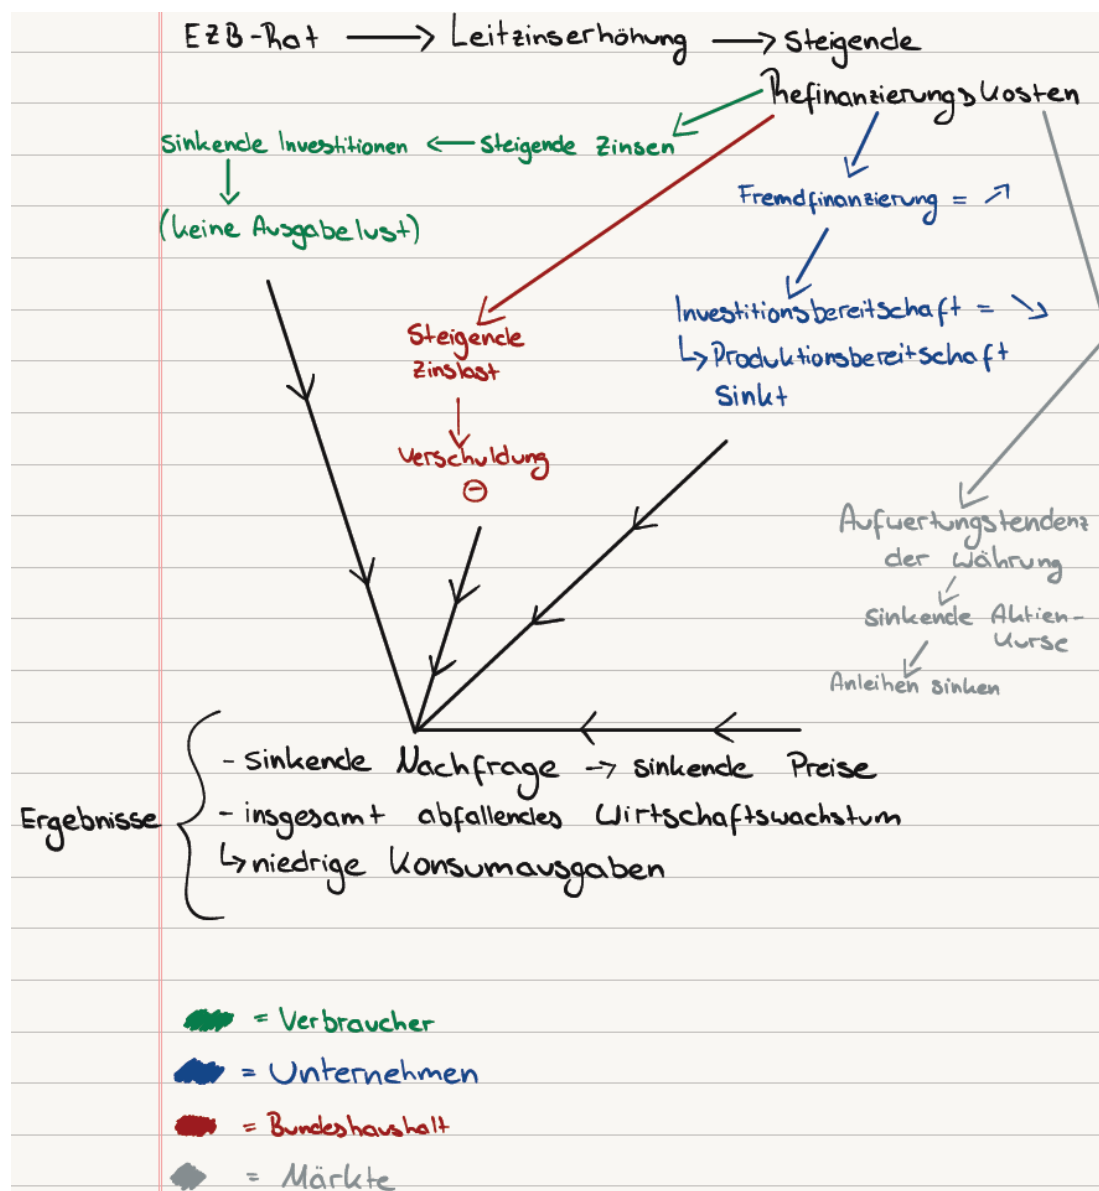 EZB-Rat → Leitzinserhöhung → Steigende
Refinanzierungskosten
Sinkende Investitionen ← Steigende Zinsen
(keine Ausgabelust)
Fremdfinanzierung = ↗
Investitionsbereitschaft = ↘
↳ Produktionsbereitschaft
sinkt
Steigende
Zinslast
Verschuldung
⊖
Aufwertungstendenz
der Währung
sinkende Aktien-
kurse
Anleihen sinken
Ergebnisse
- sinkende Nachfrage → sinkende Preise
- insgesamt abfallendes Wirtschaftswachstum
↳ niedrige Konsumausgaben
= Verbraucher
= Unternehmen
= Bundeshaushalt
= Märkte